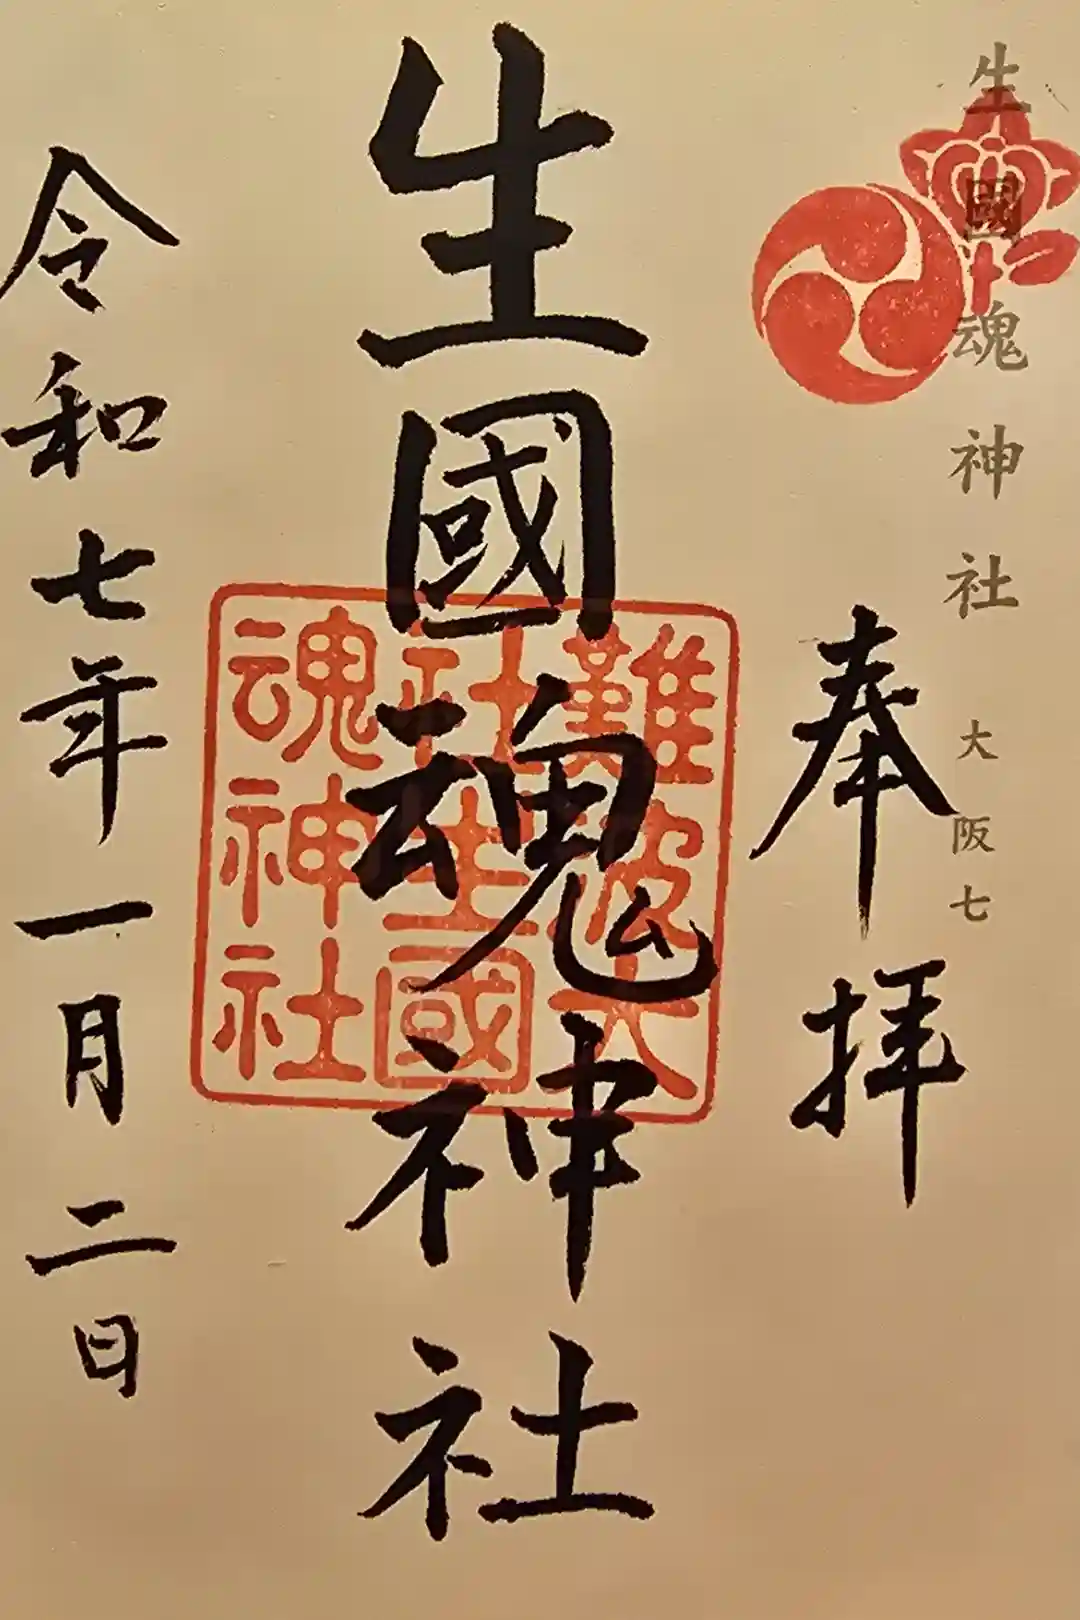 生國魂神社
大阪七
奉拝
生國魂神社
難波大
社生國
魂神社
令和七年一月二日